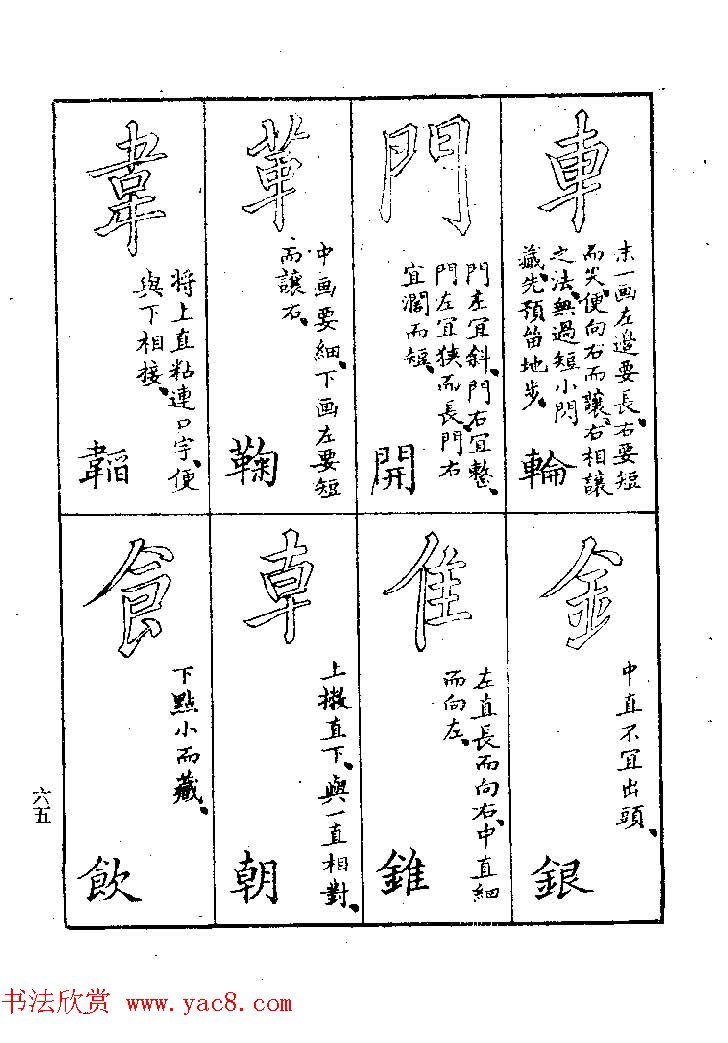 車
末一画左邊要長、右要短
而尖、便向右而讓、右相讓
之法、無過短小閃
藏、先預留地步、
輪
門
門左宜斜、門右宜整、
門左宜狹而長、門右
宜濶而短、
開
革
中画要細、下画左要短
而讓右、
鞠
韋
將上直粘連口字、便
與下相接、
韜
金
中直不宜出頭、
銀
隹
左直長而向右、中直細
而向左、
錐
卓
上橫直下、與一直相對、
朝
飠
下點小而藏、
飲
六五
书法欣赏 www.yac8.com